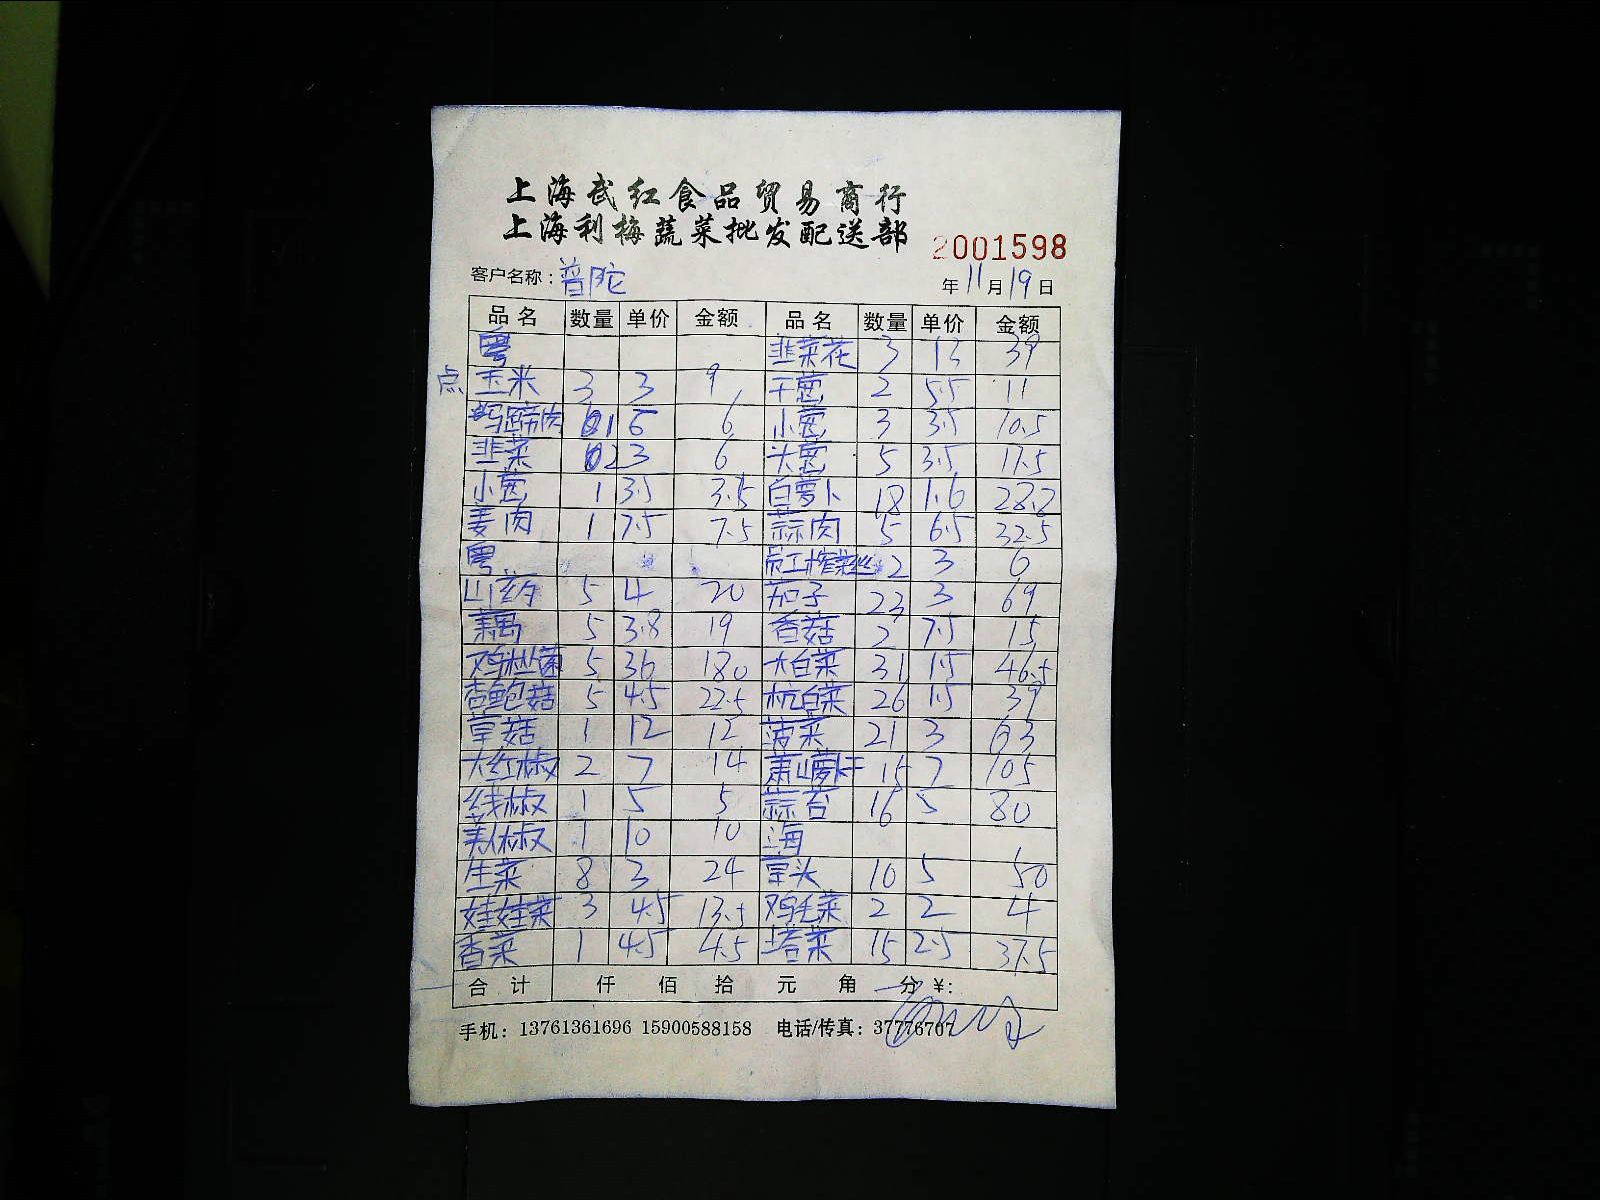 上海武红食品贸易商行
上海利梅蔬菜批发配送部
2001598
客户名称：普陀 年11月19日
品名 数量 单价 金额 品名 数量 单价 金额
粤 韭菜花 3 13 39
点 玉米 3 3 9 干葱 2 5.5 11
1 6 6 小葱 3 3.5 10.5
韭菜 2 3 6 头葱 5 3.5 17.5
小葱 1 3.5 3.5 白萝卜 18 1.6 28.8
姜肉 1 7.5 7.5 蒜肉 5 6.5 32.5
粤 员工榨菜丝 2 3 6
山药 5 4 20 茄子 23 3 69
莲藕 5 3.8 19 香菇 2 7.5 15
鸡枞菌 5 36 180 大白菜 31 1.5 46.5
杏鲍菇 5 4.5 22.5 杭白菜 26 1.5 39
草菇 1 12 12 菠菜 21 3 63
大红椒 2 7 14 萧山萝卜干 15 7 105
线椒 1 5 5 蒜苔 16 5 80
美人椒 1 10 10 上海
生菜 8 3 24 草头 10 5 50
娃娃菜 3 4.5 13.5 鸡毛菜 2 2 4
香菜 1 4.5 4.5 塔菜 15 2.5 37.5
合计 仟 佰 拾 元 角 分 ¥:
手机：13761361696 15900588158 电话/传真：37776707